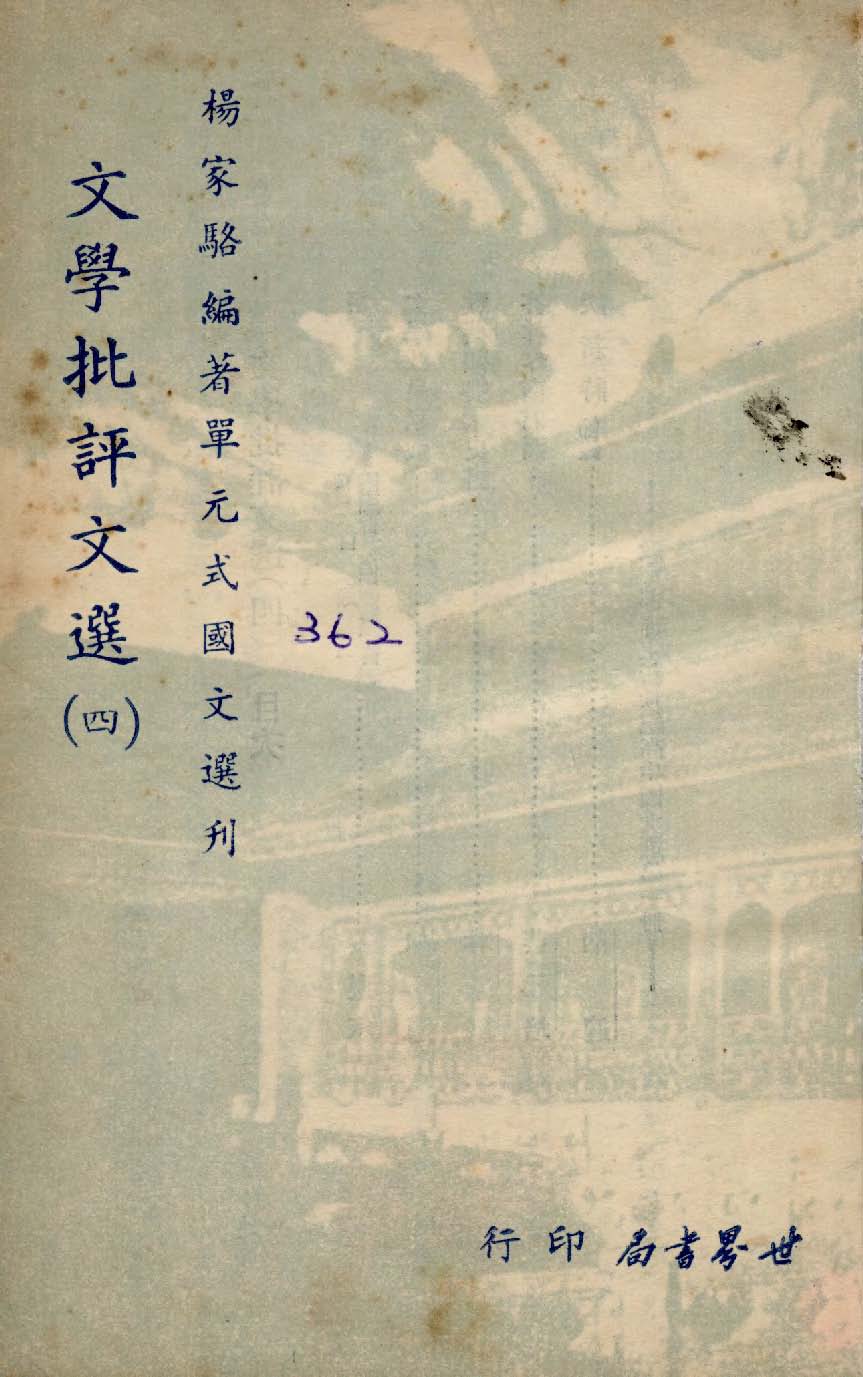 楊家駱編著單元式國文選刊
文學批評文選(四)
362
世界書局印行